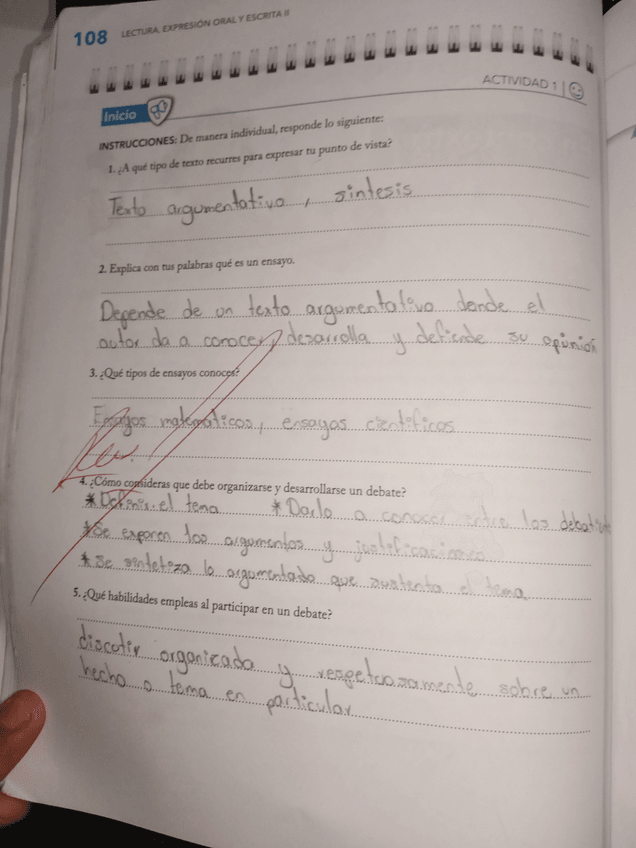 108 LECTURA, EXPRESIÓN ORAL Y ESCRITA II
ACTIVIDAD 1
Inicio
INSTRUCCIONES: De manera individual, responde lo siguiente:
1. ¿A qué tipo de texto recurres para expresar tu punto de vista?
Texto argumentativo, sintesis
2. Explica con tus palabras qué es un ensayo.
Depende de un texto argumentativo donde el
autor da a conocer, desarrolla y defiende su opinión
3. ¿Qué tipos de ensayos conoces?
Ensayos matemáticos, ensayos científicos
4. ¿Cómo consideras que debe organizarse y desarrollarse un debate?
* Definir el tema * Darlo a conocer entre los
* Se exponen los argumentos y
* Se sintetiza lo argumentado que sustenta el tema
5. ¿Qué habilidades empleas al participar en un debate?
discutir organicada y respetuosamente sobre un
hecho o tema en particular